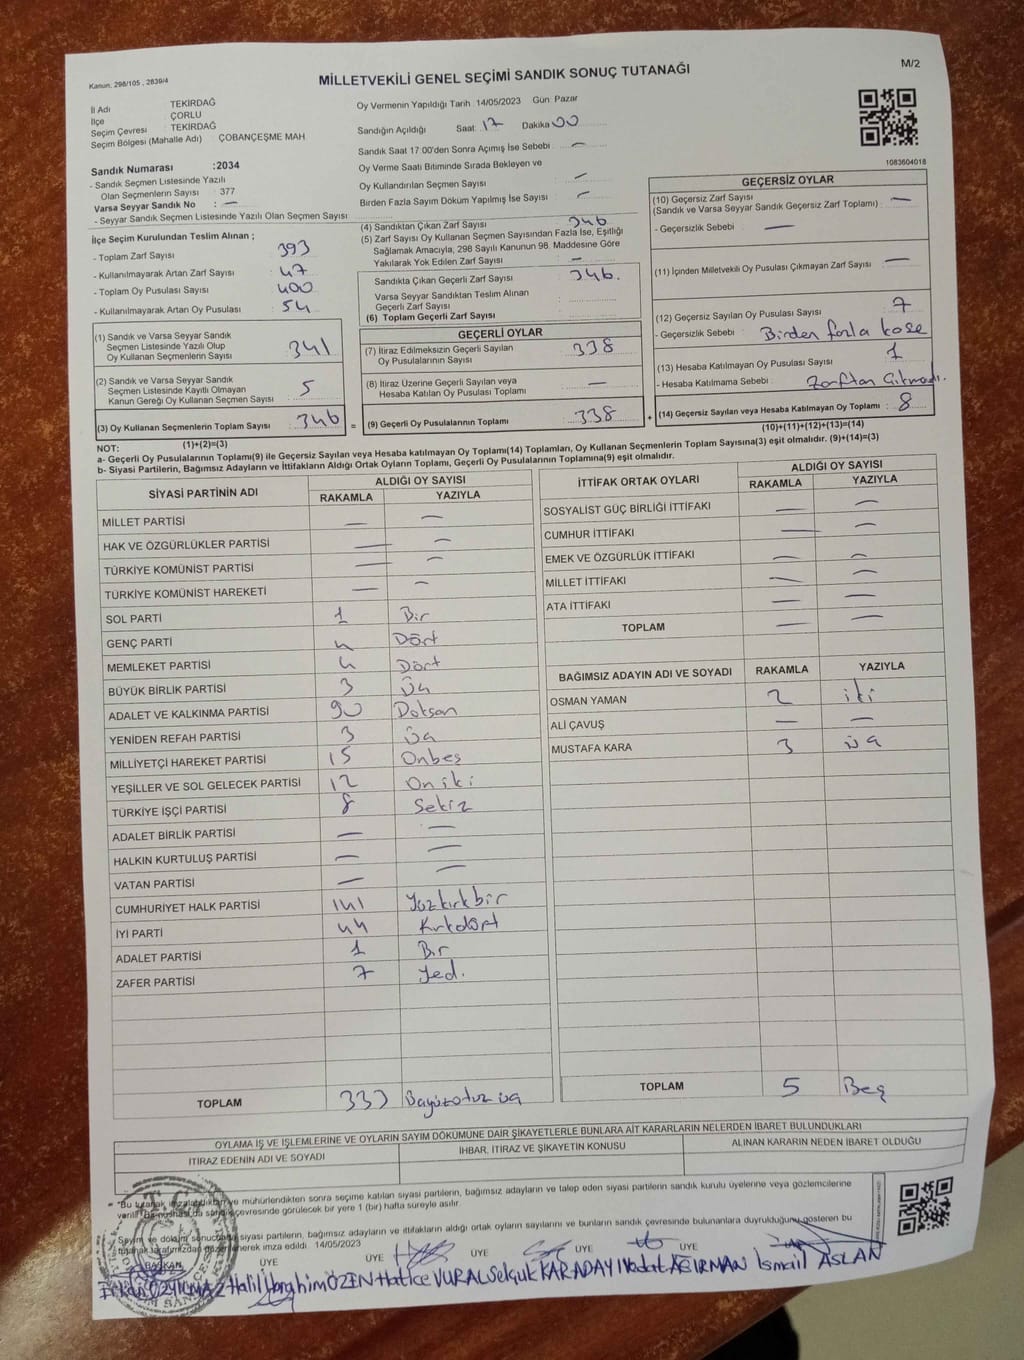 Kanun: 298/105 , 2839/4
MİLLETVEKİLİ GENEL SEÇİMİ SANDIK SONUÇ TUTANAĞI
M/2
İl Adı TEKİRDAĞ
İlçe ÇORLU
Seçim Çevresi TEKİRDAĞ
Seçim Bölgesi (Mahalle Adı) ÇOBANÇEŞME MAH
Sandık Numarası :2034
- Sandık Seçmen Listesinde Yazılı
Olan Seçmenlerin Sayısı : 377
Varsa Seyyar Sandık No : —
- Seyyar Sandık Seçmen Listesinde Yazılı Olan Seçmen Sayısı
Oy Vermenin Yapıldığı Tarih 14/05/2023 Gün Pazar
Sandığın Açıldığı Saat 17 Dakika 00
Sandık Saat 17:00'den Sonra Açımış İse Sebebi —
Oy Verme Saati Bitiminde Sırada Bekleyen ve
Oy Kullandırılan Seçmen Sayısı —
Birden Fazla Sayım Döküm Yapılmış İse Sayısı —
1083604018
İlçe Seçim Kurulundan Teslim Alınan ;
- Toplam Zarf Sayısı : 393
- Kullanılmayarak Artan Zarf Sayısı : 47
- Toplam Oy Pusulası Sayısı : 400
- Kullanılmayarak Artan Oy Pusulası : 54
(1) Sandık ve Varsa Seyyar Sandık
Seçmen Listesinde Yazılı Olup
Oy Kullanan Seçmenlerin Sayısı : 341
(2) Sandık ve Varsa Seyyar Sandık
Seçmen Listesinde Kayıtlı Olmayan
Kanun Gereği Oy Kullanan Seçmen Sayısı : 5
(3) Oy Kullanan Seçmenlerin Toplam Sayısı : 346
(1)+(2)=(3)
(4) Sandıktan Çıkan Zarf Sayısı : 346
(5) Zarf Sayısı Oy Kullanan Seçmen Sayısından Fazla İse, Eşitliği
Sağlamak Amacıyla, 298 Sayılı Kanunun 98. Maddesine Göre
Yakılarak Yok Edilen Zarf Sayısı : —
Sandıkta Çıkan Geçerli Zarf Sayısı : 346.
Varsa Seyyar Sandıktan Teslim Alınan
Geçerli Zarf Sayısı :
(6) Toplam Geçerli Zarf Sayısı :
GEÇERLİ OYLAR
(7) İtiraz Edilmeksizin Geçerli Sayılan
Oy Pusulalarının Sayısı : 338
(8) İtiraz Üzerine Geçerli Sayılan veya
Hesaba Katılan Oy Pusulası Toplamı : —
= (9) Geçerli Oy Pusulalarının Toplamı : 338
GEÇERSİZ OYLAR
(10) Geçersiz Zarf Sayısı : —
(Sandık ve Varsa Seyyar Sandık Geçersiz Zarf Toplamı)
- Geçersizlik Sebebi : —
(11) İçinden Milletvekili Oy Pusulası Çıkmayan Zarf Sayısı : —
(12) Geçersiz Sayılan Oy Pusulası Sayısı : 7
- Geçersizlik Sebebi : Birden fazla kase
(13) Hesaba Katılmayan Oy Pusulası Sayısı : 1
- Hesaba Katılmama Sebebi : Zarftan Çıkmadı.
+ (14) Geçersiz Sayılan veya Hesaba Katılmayan Oy Toplamı : 8
(10)+(11)+(12)+(13)=(14)
NOT:
a- Geçerli Oy Pusulalarının Toplamı(9) ile Geçersiz Sayılan veya Hesaba katılmayan Oy Toplamı(14) Toplamları, Oy Kullanan Seçmenlerin Toplam Sayısına(3) eşit olmalıdır. (9)+(14)=(3)
b- Siyasi Partilerin, Bağımsız Adayların ve İttifakların Aldığı Ortak Oyların Toplamı, Geçerli Oy Pusulalarının Toplamına(9) eşit olmalıdır.
SİYASİ PARTİNİN ADI ALDIĞI OY SAYISI
RAKAMLA YAZIYLA
MİLLET PARTİSİ — —
HAK VE ÖZGÜRLÜKLER PARTİSİ — —
TÜRKİYE KOMÜNİST PARTİSİ — —
TÜRKİYE KOMÜNİST HAREKETİ — —
SOL PARTİ 1 Bir
GENÇ PARTİ 4 Dört
MEMLEKET PARTİSİ 4 Dört
BÜYÜK BİRLİK PARTİSİ 3 Üç
ADALET VE KALKINMA PARTİSİ 90 Doksan
YENİDEN REFAH PARTİSİ 3 Üç
MİLLİYETÇİ HAREKET PARTİSİ 15 Onbeş
YEŞİLLER VE SOL GELECEK PARTİSİ 12 Oniki
TÜRKİYE İŞÇİ PARTİSİ 8 Sekiz
ADALET BİRLİK PARTİSİ — —
HALKIN KURTULUŞ PARTİSİ — —
VATAN PARTİSİ — —
CUMHURİYET HALK PARTİSİ 141 Yüzkırkbir
İYİ PARTİ 44 Kırkdört
ADALET PARTİSİ 1 Bir
ZAFER PARTİSİ 7 Yedi
TOPLAM 333
İTTİFAK ORTAK OYLARI ALDIĞI OY SAYISI
RAKAMLA YAZIYLA
SOSYALİST GÜÇ BİRLİĞİ İTTİFAKI — —
CUMHUR İTTİFAKI — —
EMEK VE ÖZGÜRLÜK İTTİFAKI — —
MİLLET İTTİFAKI — —
ATA İTTİFAKI — —
TOPLAM — —
BAĞIMSIZ ADAYIN ADI VE SOYADI RAKAMLA YAZIYLA
OSMAN YAMAN 2 iki
ALİ ÇAVUŞ — —
MUSTAFA KARA 3 üç
TOPLAM 5 Beş
OYLAMA İŞ VE İŞLEMLERİNE VE OYLARIN SAYIM DÖKÜMÜNE DAİR ŞİKAYETLERLE BUNLARA AİT KARARLARIN NELERDEN İBARET BULUNDUKLARI
İTİRAZ EDENİN ADI VE SOYADI İHBAR, İTİRAZ VE ŞİKAYETİN KONUSU ALINAN KARARIN NEDEN İBARET OLDUĞU
* "Bu tutanak imzalandıktan ve mühürlendikten sonra seçime katılan siyasi partilerin, bağımsız adayların ve talep eden siyasi partilerin sandık kurulu üyelerine veya gözlemcilerine
verilir. Bir nüshası da sandık çevresinde görülecek bir yere 1 (bir) hafta süreyle asılır.
Sayım ve döküm sonucunda siyasi partilerin, bağımsız adayların ve ittifakların aldığı ortak oyların sayılarını ve bunların sandık çevresinde bulunanlara duyrulduğunu gösteren bu
tutanak tarafımızdan düzenlenerek imza edildi. 14/05/2023
BAŞKAN ÜYE ÜYE ÜYE ÜYE ÜYE
ÖZYILMAZ Halil İbrahim ÖZEN Hatice VURAL Selçuk KARADAYI Vedat AĞIRMAN İsmail ASLAN